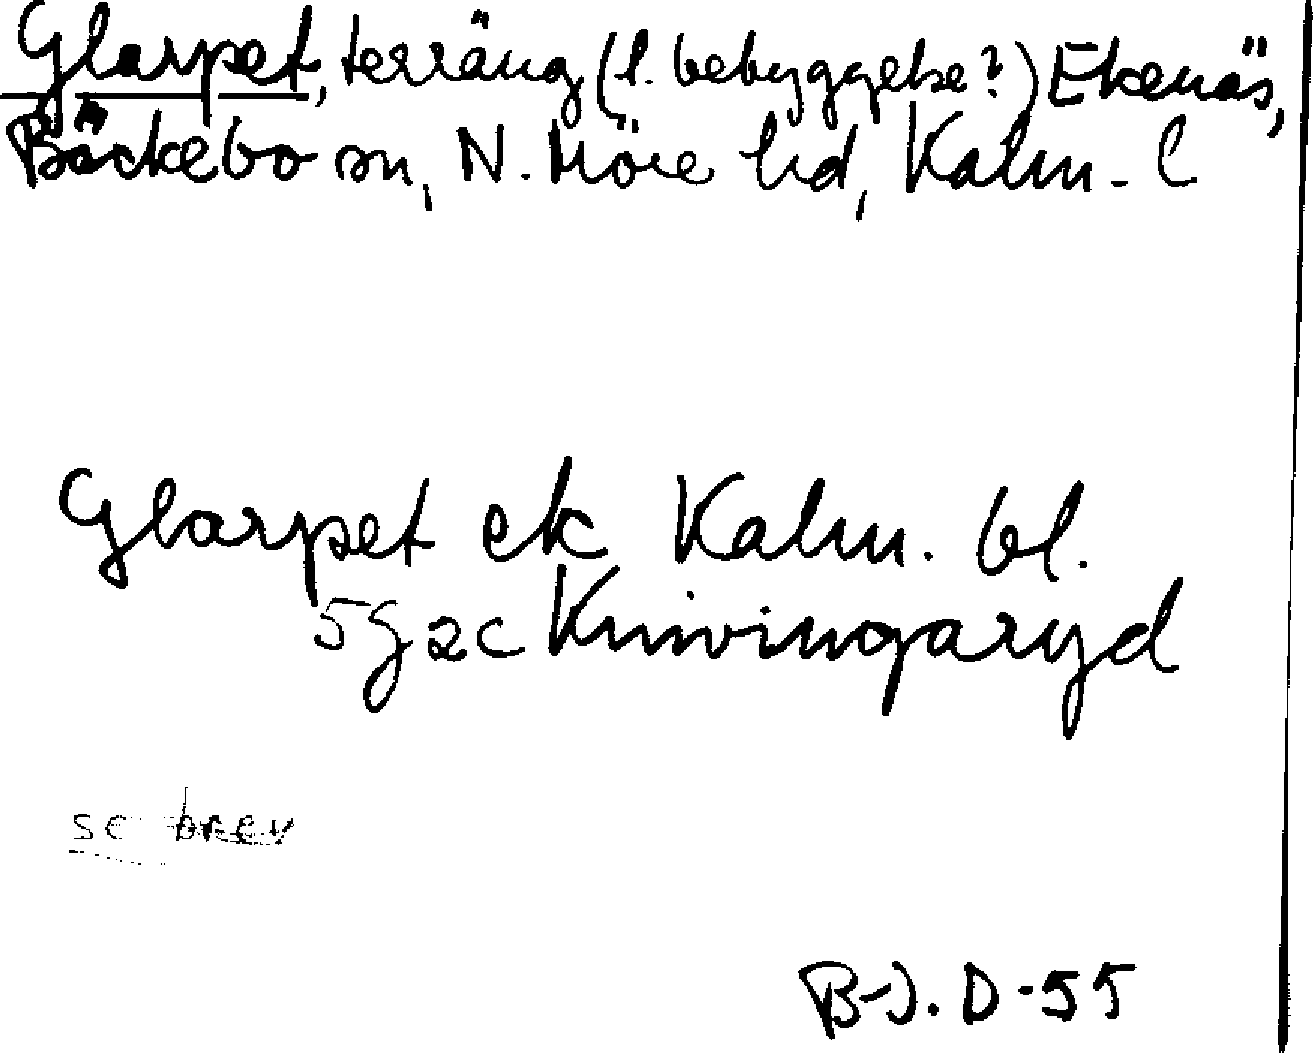 Glarpet, terräng (l. bebyggelse?) Ekenäs,
Bäckebo sn, N. Möre hd, Kalm. l
Glarpet ek Kalm. bl.
5g2c Knivingaryd
se brev
B-J. D-55